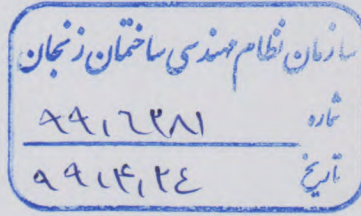 سازمان نظام مهندسی ساختمان زنجان
شماره ۹۹،۶۳۸۱
تاریخ ۹۹،۴،۲۴